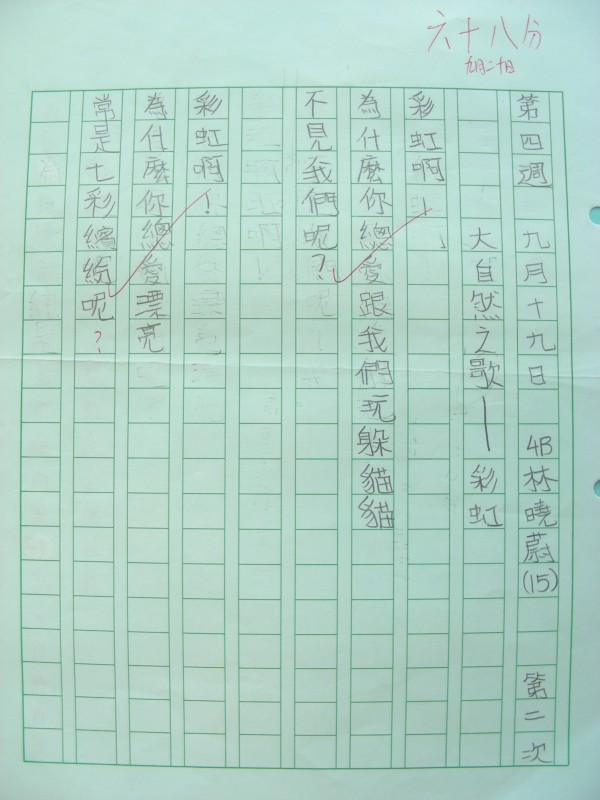 六十八分
九月二十日
第四週 九月十九日 4B林曉蔚(15) 第二次
大自然之歌—彩虹
彩虹啊！
為什麼你總愛跟我們玩躲貓貓
不見我們呢？
彩虹啊！
為什麼你總愛漂亮
常是七彩繽紛呢？